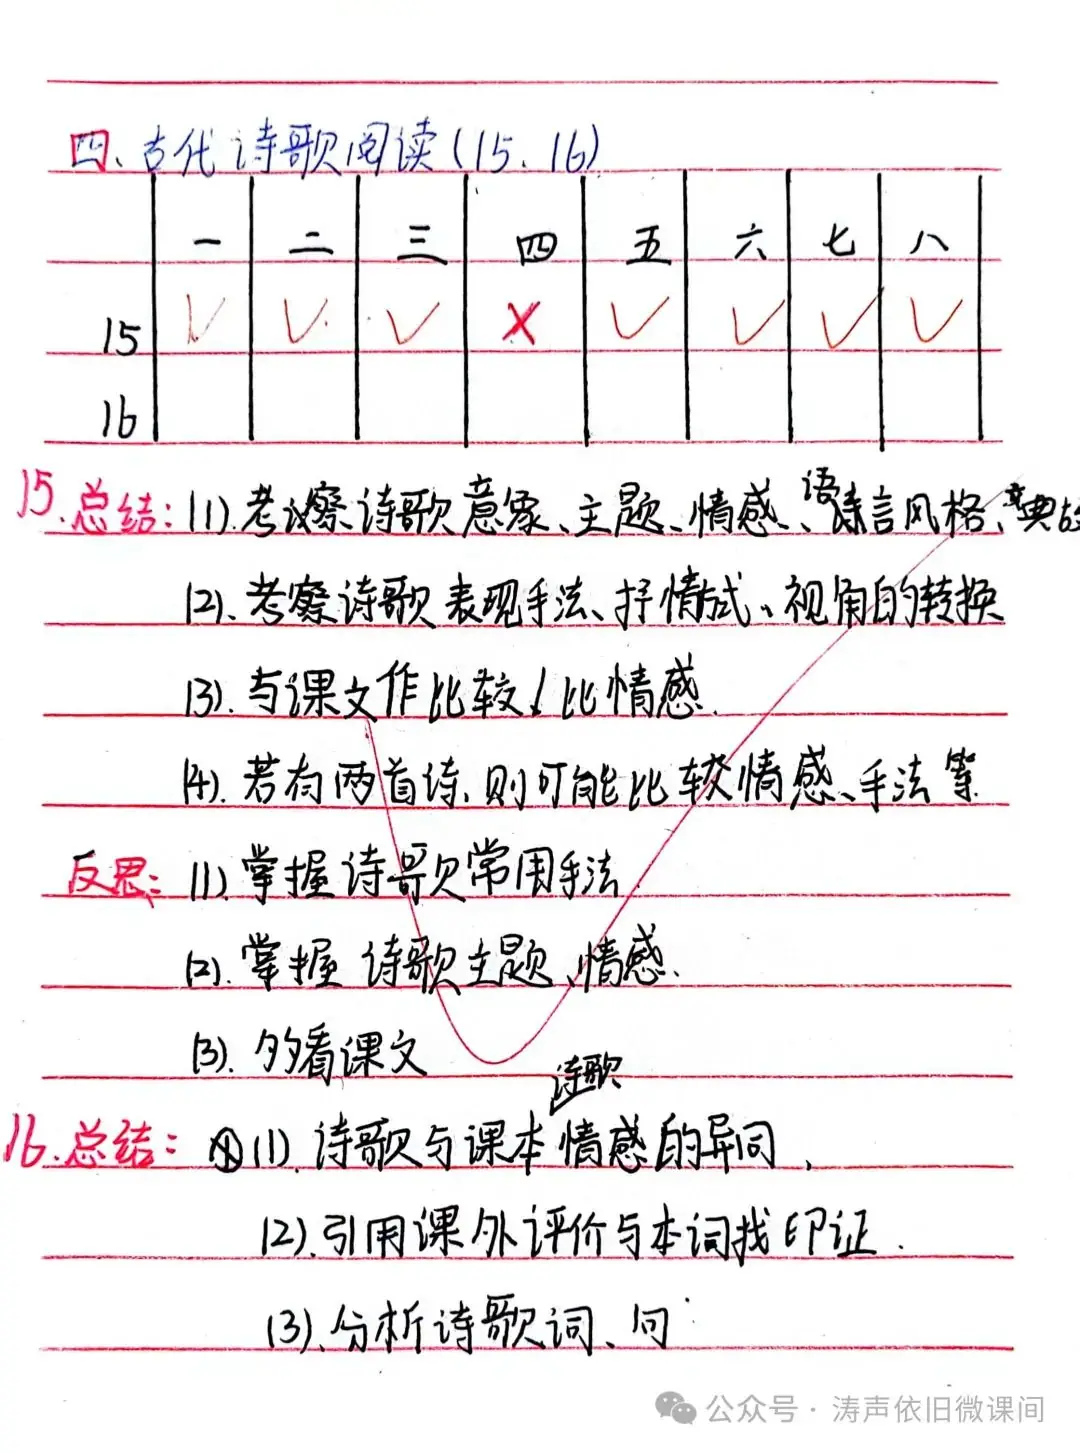 四、古代诗歌阅读(15、16)
一 二 三 四 五 六 七 八
15 ✓ ✓ ✓ ✗ ✓ ✓ ✓ ✓
16
15.总结:(1).考察诗歌意象、主题、情感、语言风格、典故
(2).考察诗歌表现手法、抒情方式、视角的转换
(3).与课文作比较!比情感.
(4).若有两首诗,则可能比较情感、手法等
反思:(1).掌握诗歌常用手法
(2).掌握诗歌主题、情感.
(3).多看课文
16.总结:(1).诗歌与课本诗歌情感的异同,
(2).引用课外评价与本词找印证.
(3).分析诗歌词、句
公众号·涛声依旧微课间